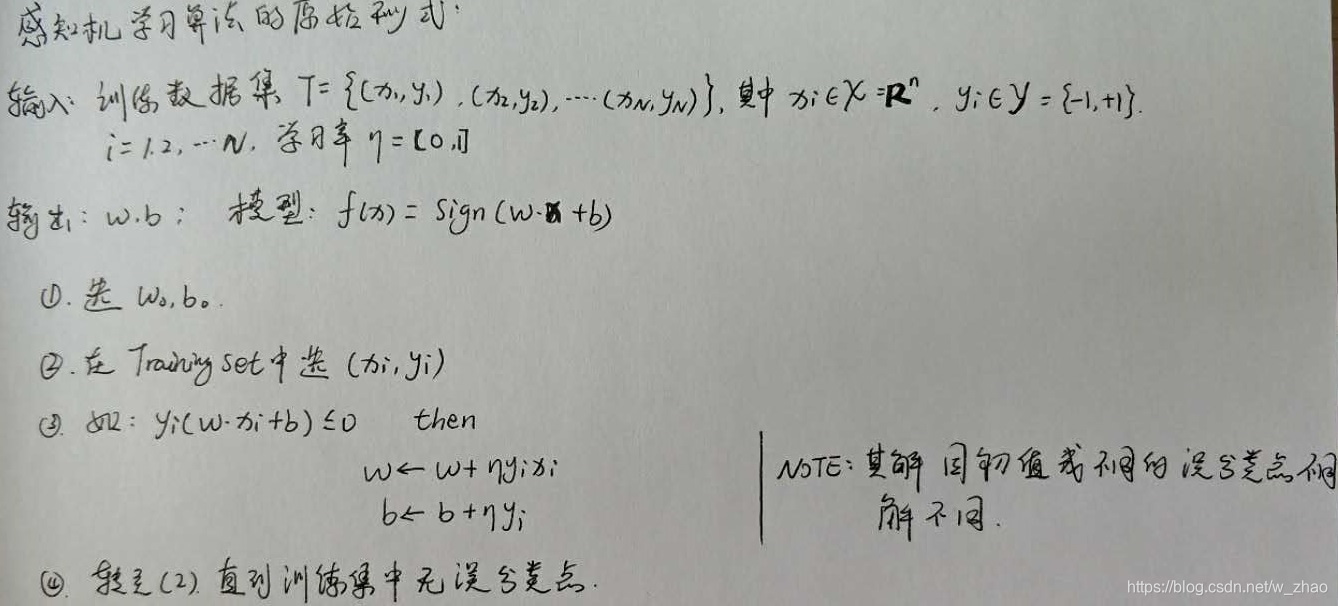 感知机学习算法的原始形式:
输入: 训练数据集 T= {(x₁,y₁), (x₂,y₂), ····(x_N,y_N)}, 其中 xᵢ∈X=Rⁿ, yᵢ∈Y={-1,+1}.
i=1.2,···N. 学习率 η=[0,1]
输出: w.b; 模型: f(x)= Sign(w·x+b)
①. 选 w₀,b₀.
②. 在 Training set 中选 (xᵢ,yᵢ)
③. 如: yᵢ(w·xᵢ+b)≤0 then
w←w+ηyᵢxᵢ
b←b+ηyᵢ
NOTE: 其解 因初值或不同的误分类点不同
解不同.
④. 转至(2). 直到训练集中无误分类点.
https://blog.csdn.net/w_zhao